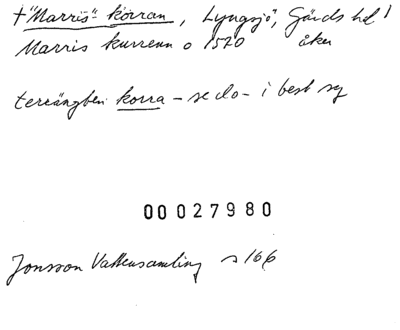 + "Marris"- körran, Lyngsjö, Gärds hd
Marris kurrenn o 1570 åker
terrängben. korra - se do - i best sg
00 027980
Jonsson Vattensamling s 166